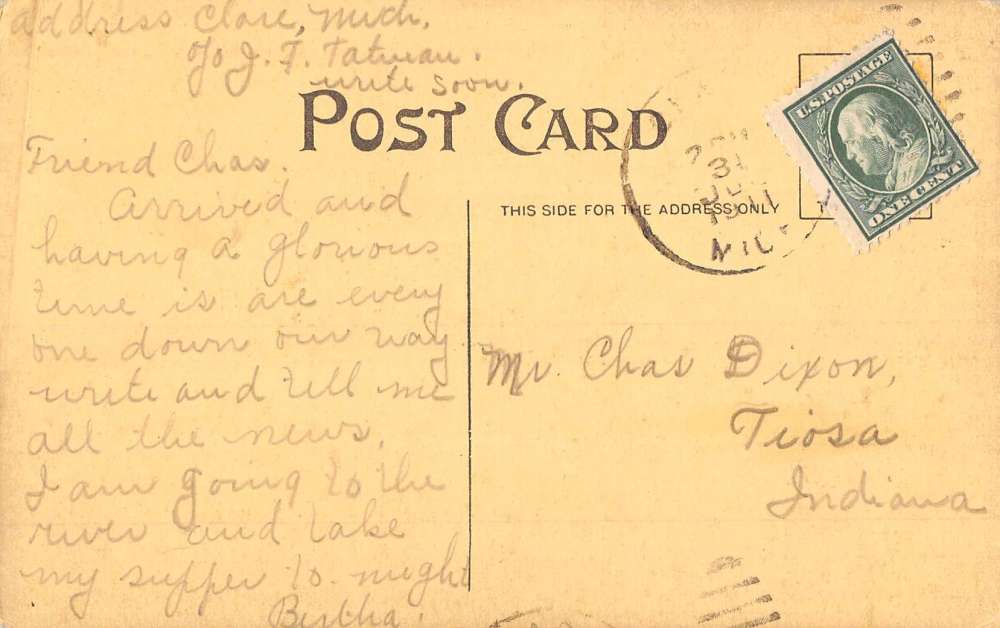 address Clare, Mich,
c/o J. F. Tatman.
write soon.
POST CARD
THIS SIDE FOR THE ADDRESS ONLY
U.S. POSTAGE
ONE CENT
31
1911
MICH
Friend Chas.
Arrived and
having a glorious
time is are every
one down our way
write and tell me
all the news.
I am going to the
river and take
my supper to night
Bertha.
Mr. Chas Dixon,
Tiosa
Indiana